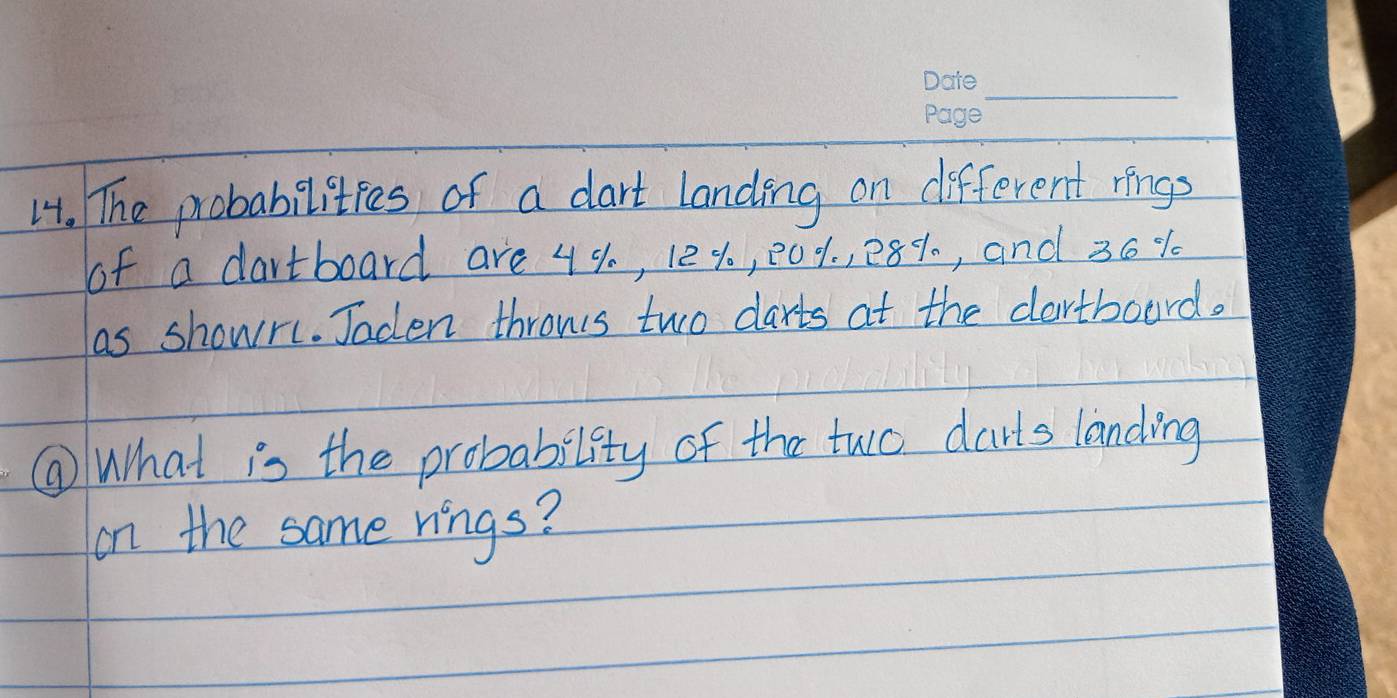 Date
Page
14. The probabilities of a dart landing on different rings
of a dartboard are 4%, 12%, 20%, 28%, and 36%
as shown. Jaden throws two darts at the dartboard.
(a) What is the probability of the two darts landing
on the same rings?